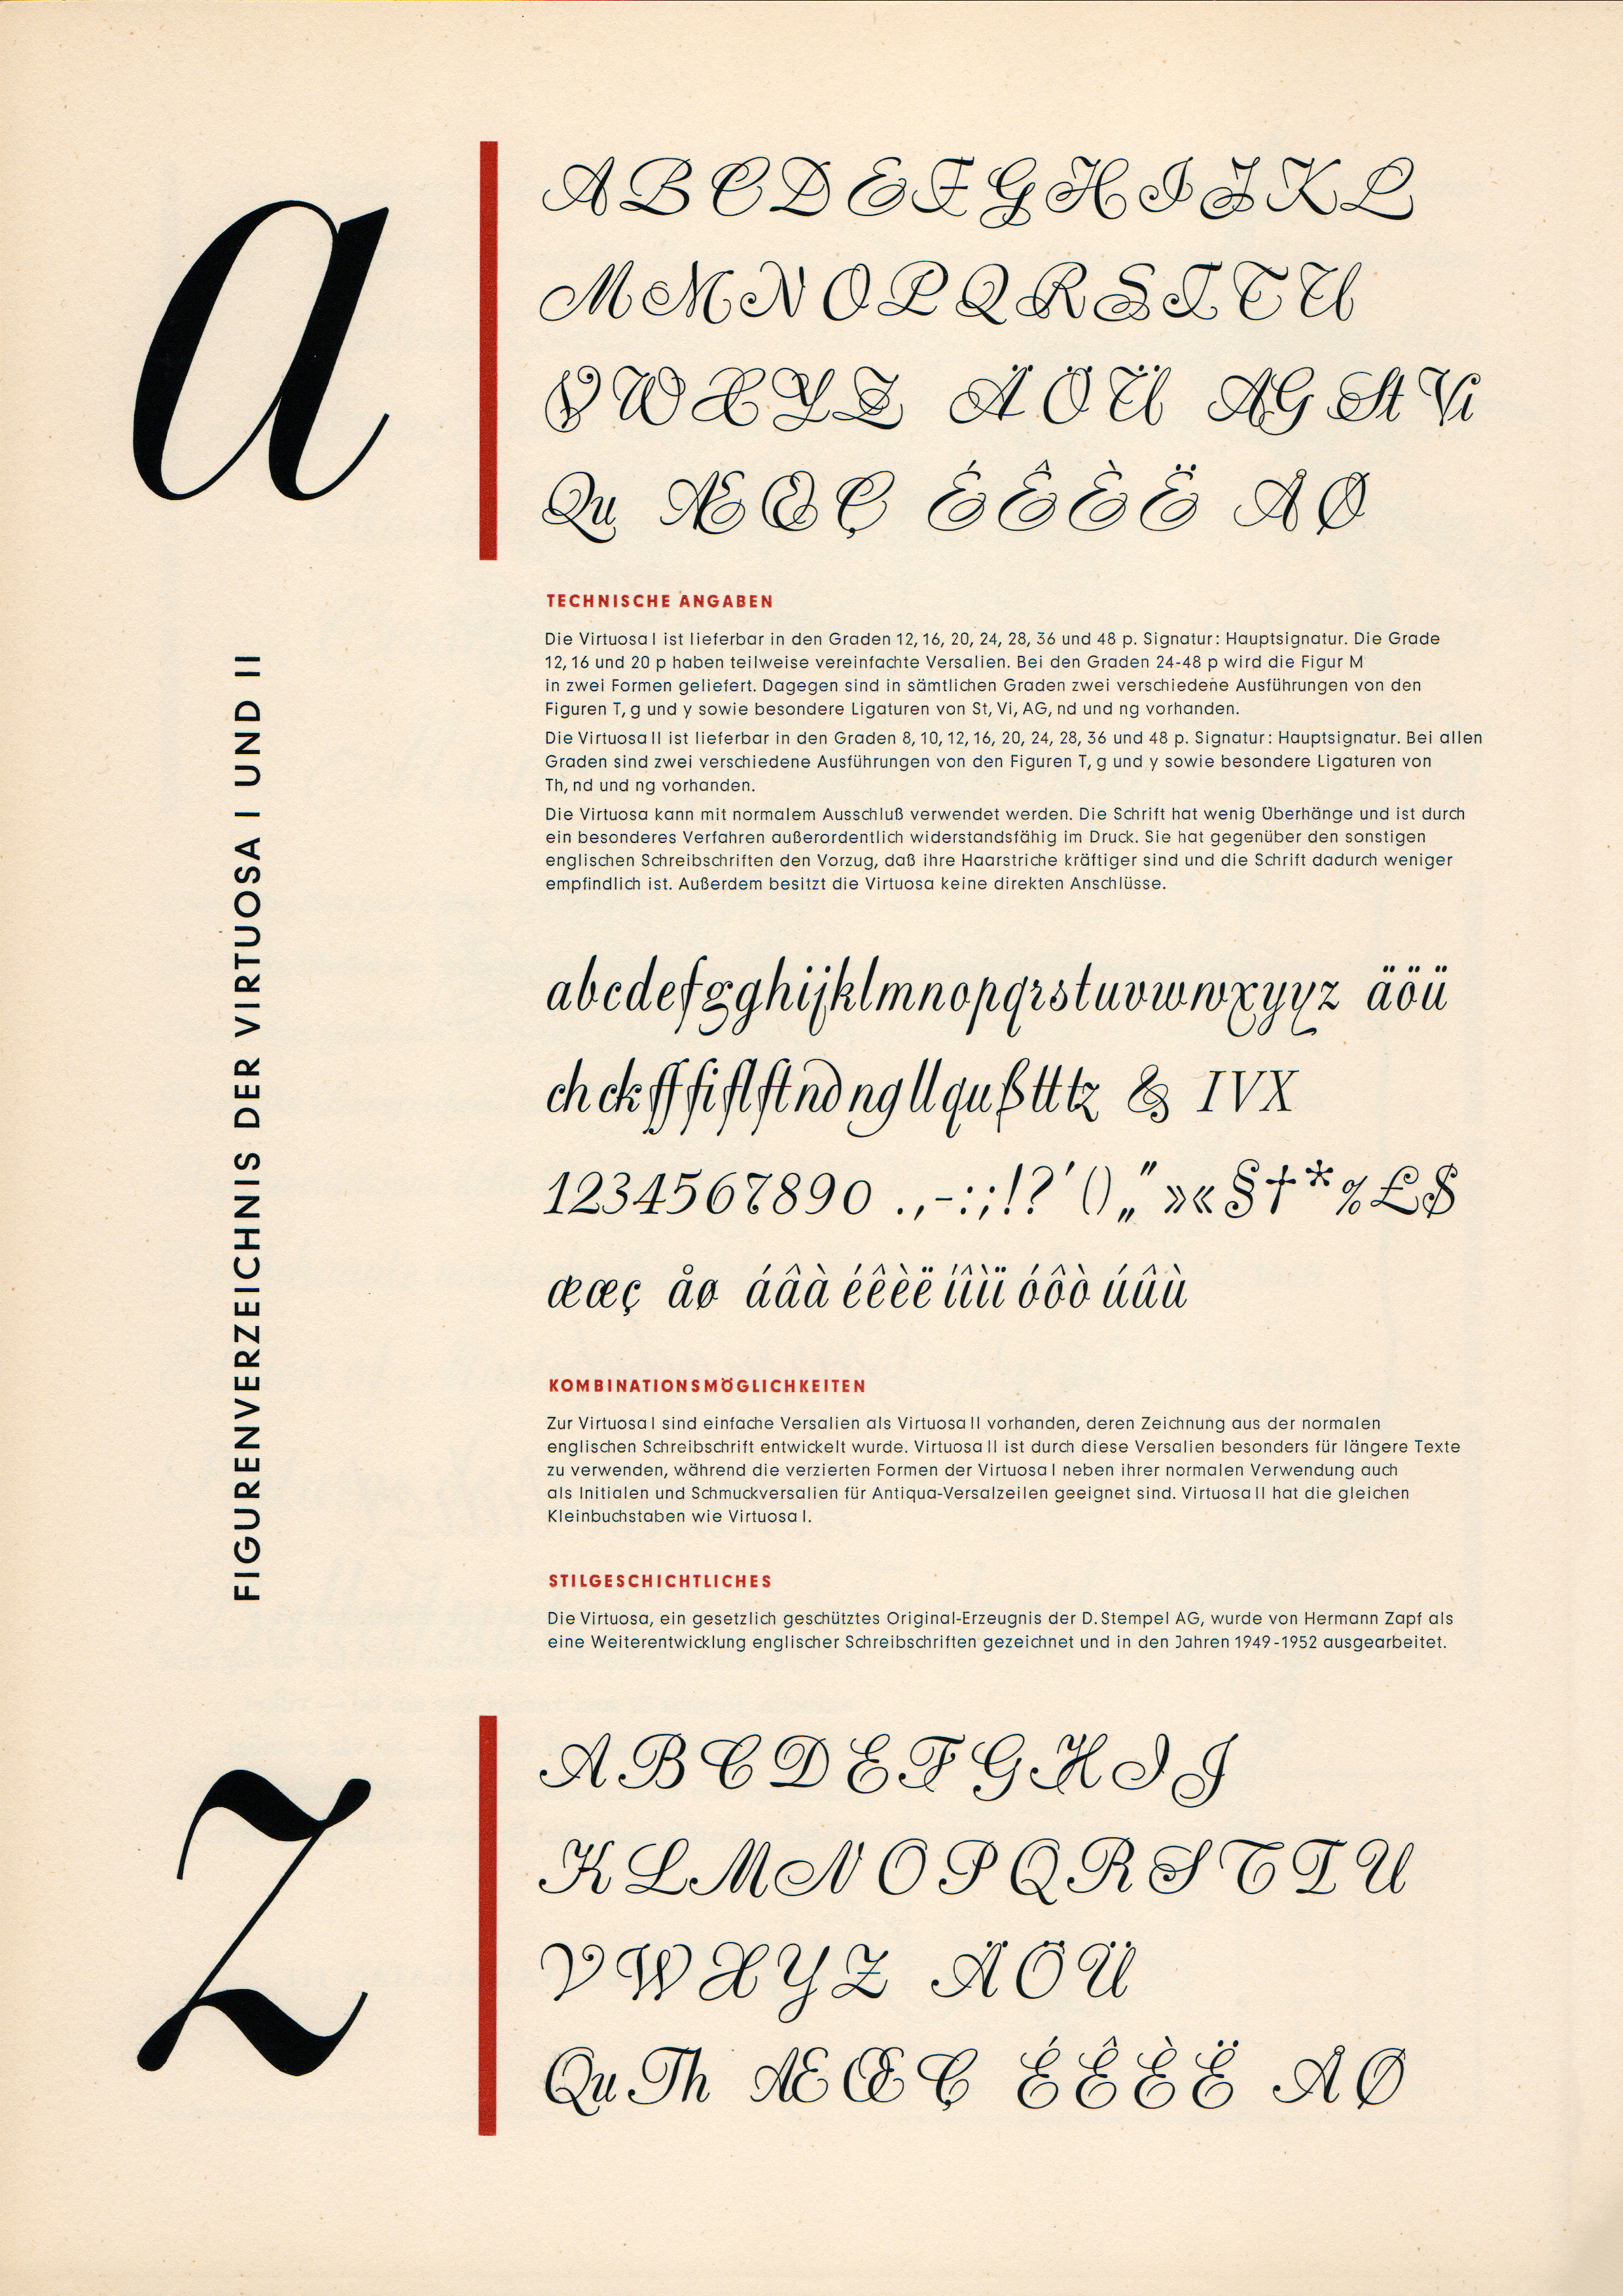 a
A B C D E F G H I J K L
M M N O P Q R S T T U
V W X Y Z Ä Ö Ü AG St Vi
Qu Æ Œ Ç É Ê È Ë Å Ø
TECHNISCHE ANGABEN
Die Virtuosa I ist lieferbar in den Graden 12, 16, 20, 24, 28, 36 und 48 p. Signatur: Hauptsignatur. Die Grade
12, 16 und 20 p haben teilweise vereinfachte Versalien. Bei den Graden 24-48 p wird die Figur M
in zwei Formen geliefert. Dagegen sind in sämtlichen Graden zwei verschiedene Ausführungen von den
Figuren T, g und y sowie besondere Ligaturen von St, Vi, AG, nd und ng vorhanden.
Die Virtuosa II ist lieferbar in den Graden 8, 10, 12, 16, 20, 24, 28, 36 und 48 p. Signatur: Hauptsignatur. Bei allen
Graden sind zwei verschiedene Ausführungen von den Figuren T, g und y sowie besondere Ligaturen von
Th, nd und ng vorhanden.
Die Virtuosa kann mit normalem Ausschluß verwendet werden. Die Schrift hat wenig Überhänge und ist durch
ein besonderes Verfahren außerordentlich widerstandsfähig im Druck. Sie hat gegenüber den sonstigen
englischen Schreibschriften den Vorzug, daß ihre Haarstriche kräftiger sind und die Schrift dadurch weniger
empfindlich ist. Außerdem besitzt die Virtuosa keine direkten Anschlüsse.
abcdefgghijklmnopqrstuvwwxyyz äöü
ch ck ff fi fl ft nd ng ll qu ß tt tz & IVX
1234567890 .,-:;!?'()„"»«§†*%£$
æœç åø áâà éêèë íîìï óôò úûù
KOMBINATIONSMÖGLICHKEITEN
Zur Virtuosa I sind einfache Versalien als Virtuosa II vorhanden, deren Zeichnung aus der normalen
englischen Schreibschrift entwickelt wurde. Virtuosa II ist durch diese Versalien besonders für längere Texte
zu verwenden, während die verzierten Formen der Virtuosa I neben ihrer normalen Verwendung auch
als Initialen und Schmuckversalien für Antiqua-Versalzeilen geeignet sind. Virtuosa II hat die gleichen
Kleinbuchstaben wie Virtuosa I.
STILGESCHICHTLICHES
Die Virtuosa, ein gesetzlich geschütztes Original-Erzeugnis der D. Stempel AG, wurde von Hermann Zapf als
eine Weiterentwicklung englischer Schreibschriften gezeichnet und in den Jahren 1949-1952 ausgearbeitet.
A B C D E F G H I J
K L M N O P Q R S T T U
V W X Y Z Ä Ö Ü
Qu Th Æ Œ Ç É Ê È Ë Å Ø
FIGURENVERZEICHNIS DER VIRTUOSA I UND II
z